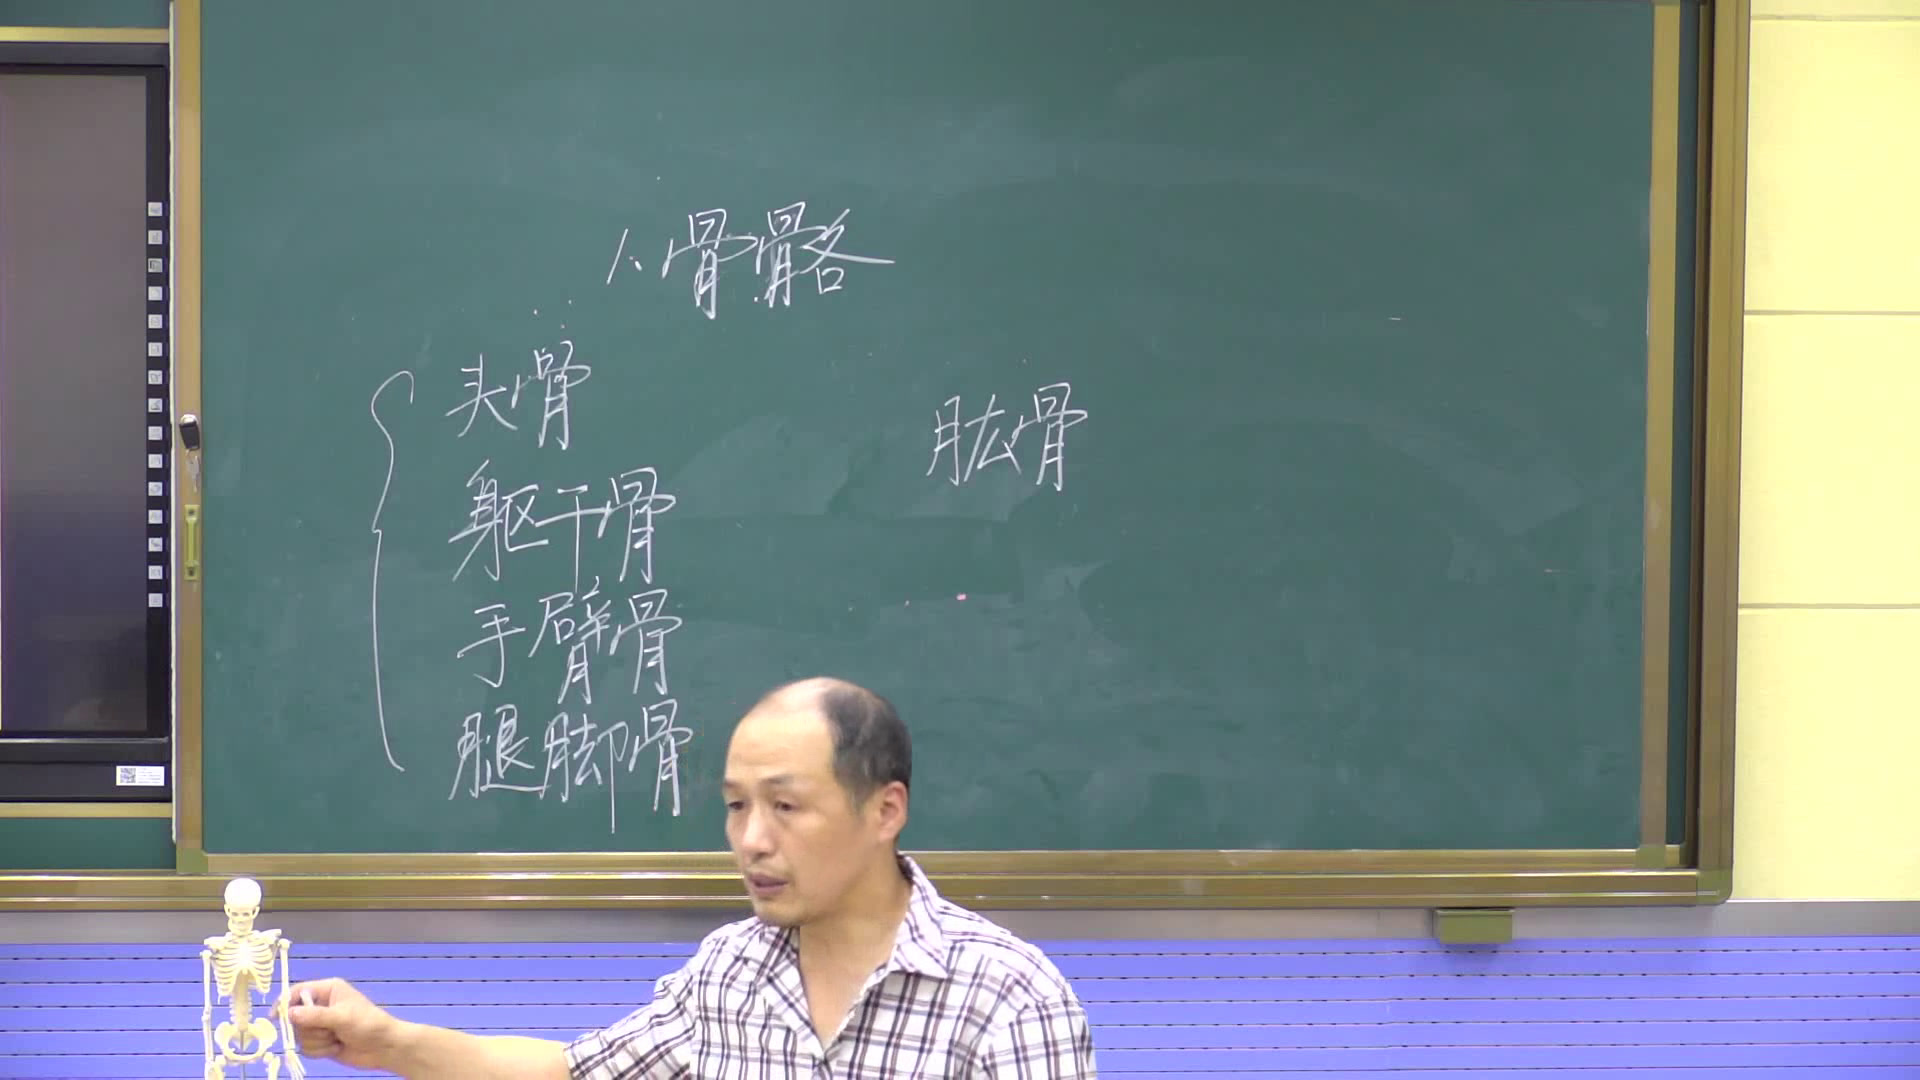 人骨骼
头骨
肱骨
躯干骨
手臂骨
腿脚骨